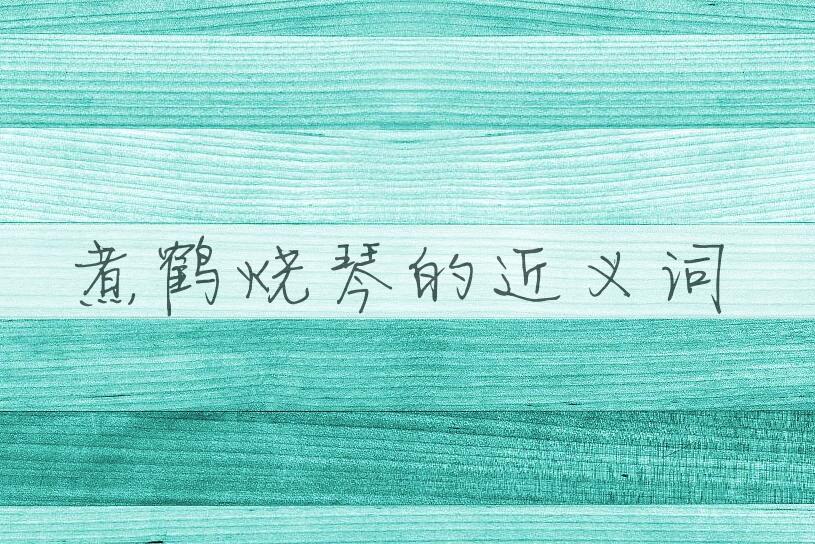 煮鹤烧琴的近义词